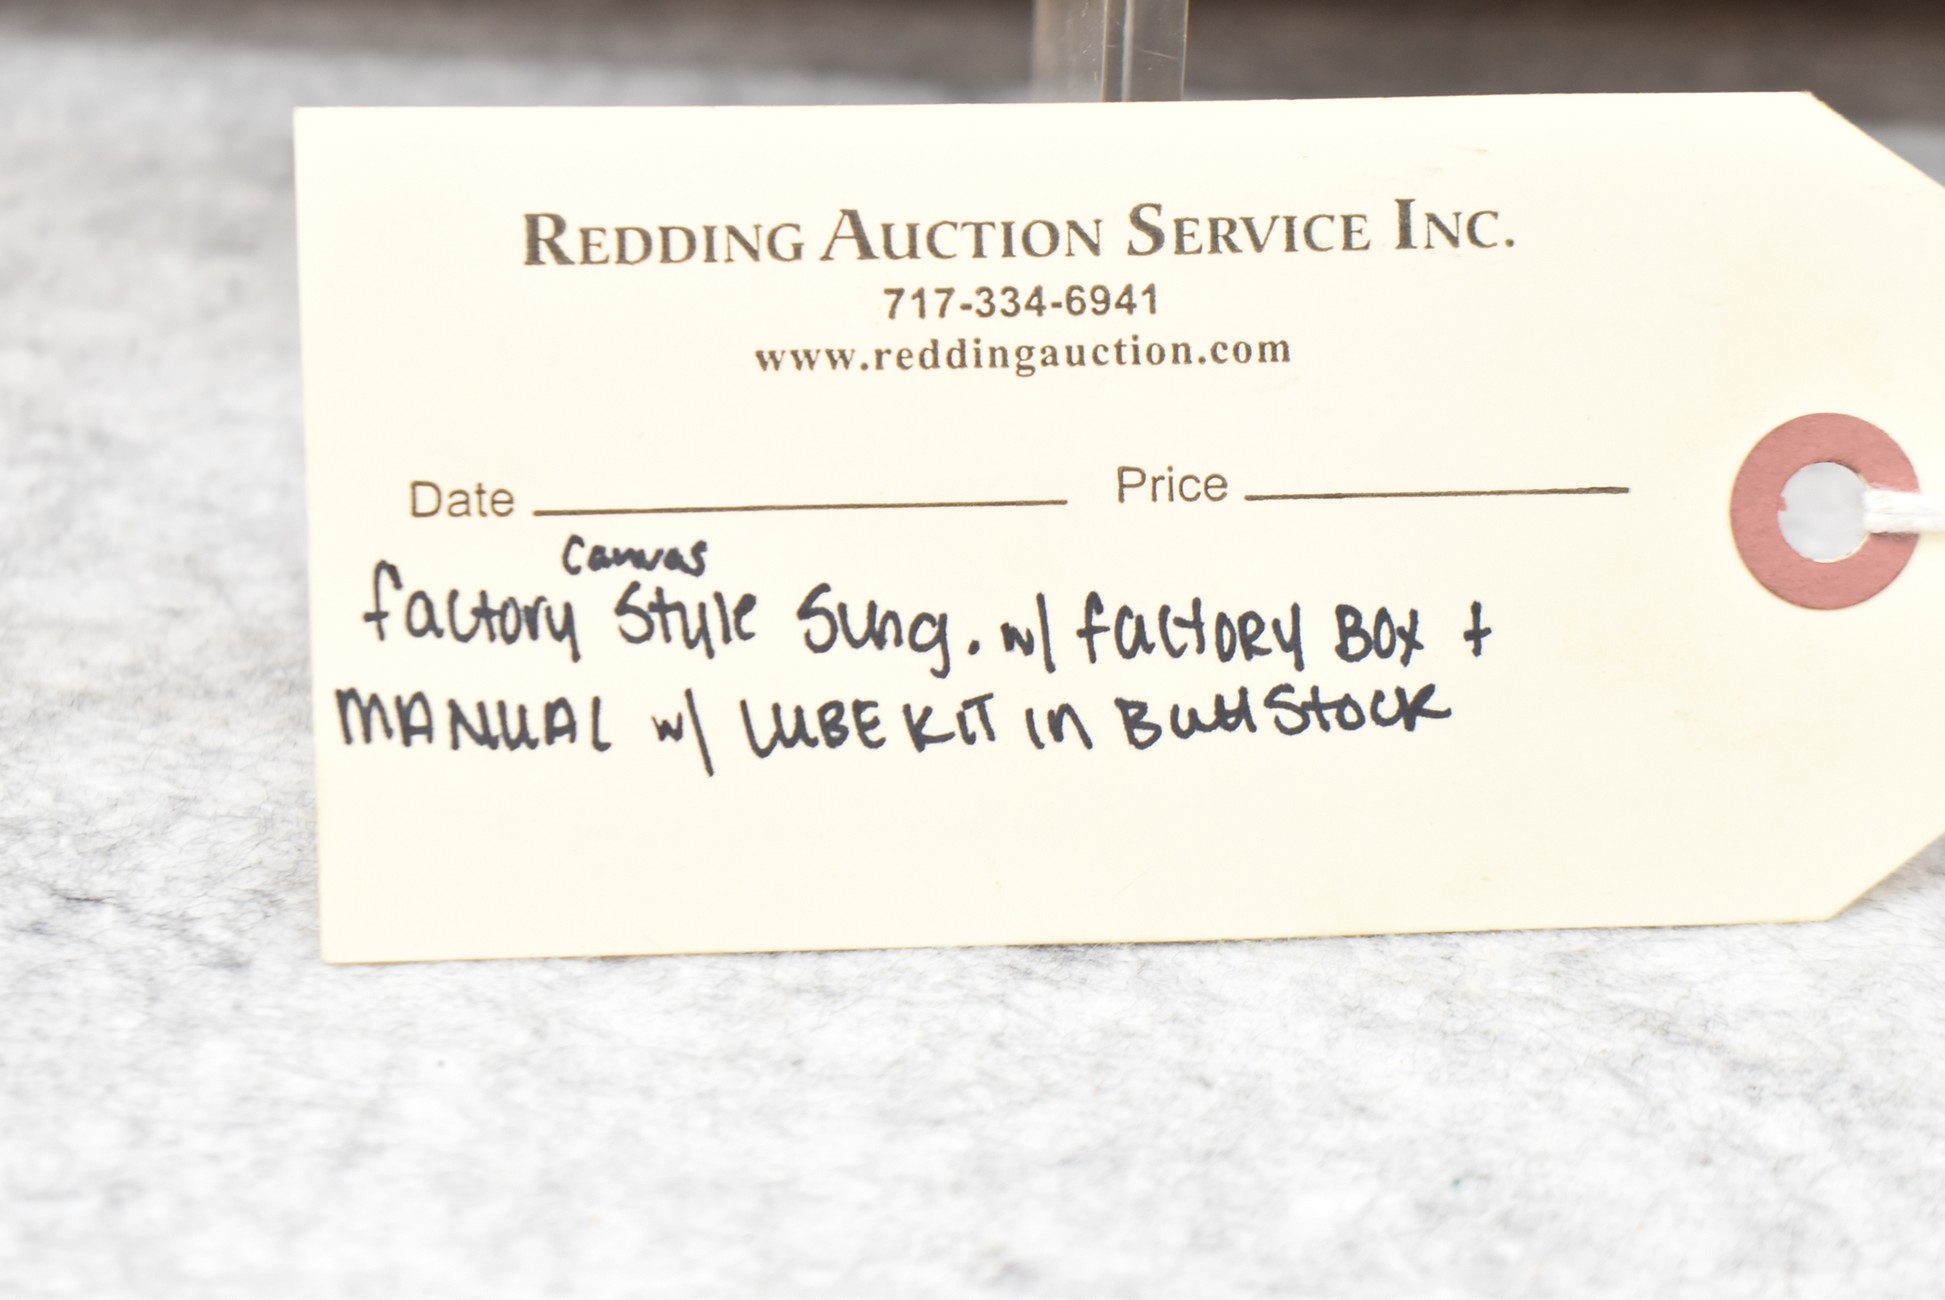 REDDING AUCTION SERVICE INC.
717-334-6941
www.reddingauction.com
Date Price
Canvas
factory Style Sling. w/ factory Box +
MANUAL w/ LUBE KIT in Butt Stock